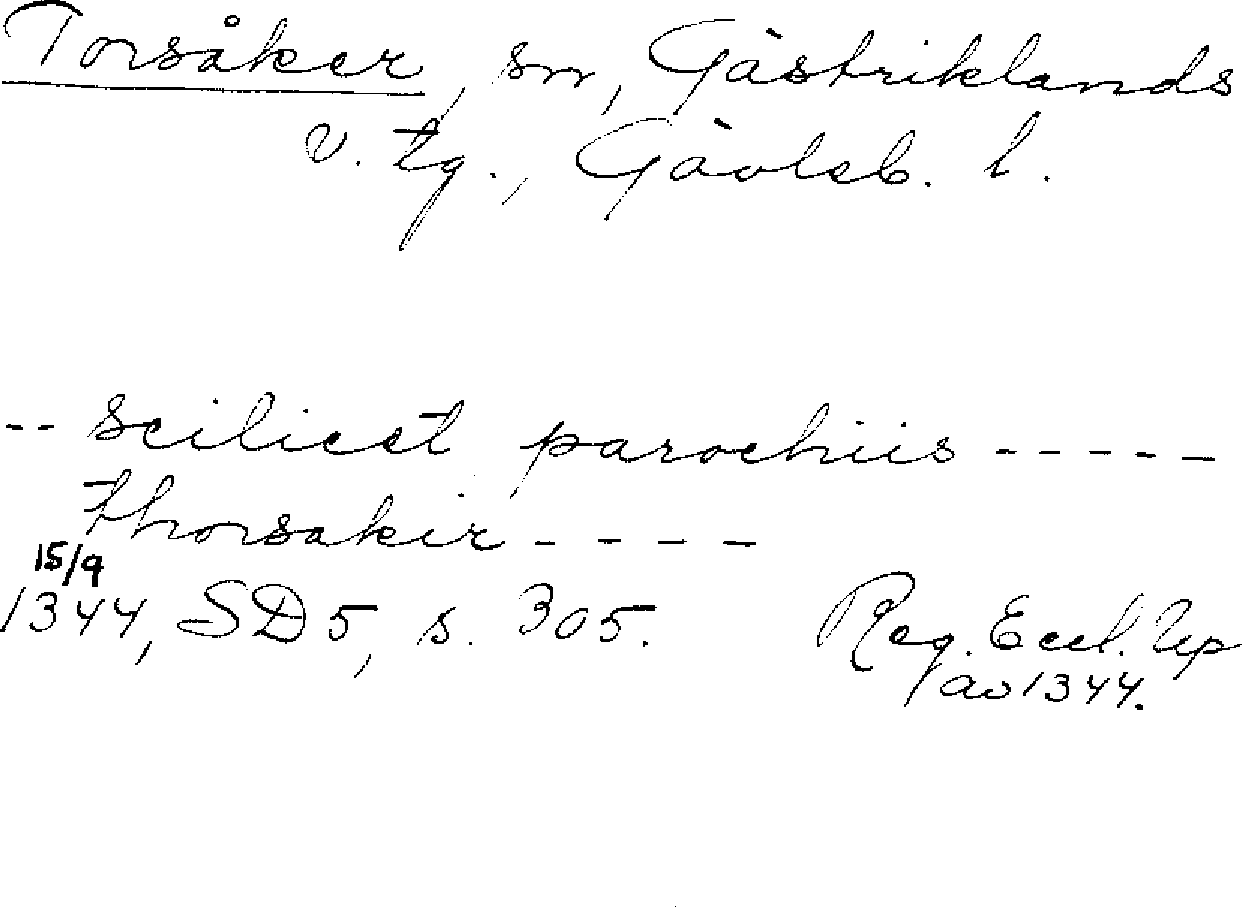 Torsåker, sn, Gästriklands
v. tg., Gävleb. l.
-- scilicet parochiis -----
thorsakir ----
15/9
1344, SD 5, s. 305. Reg. Eccl. Up
av 1344.